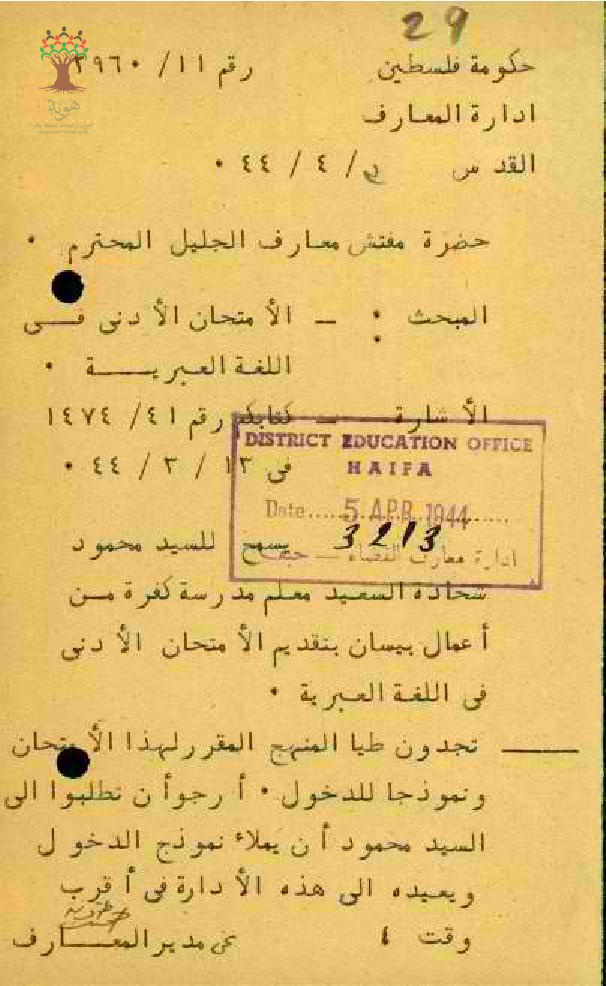 29
حكومة فلسطين رقم ١١/ ٣٩٦٠
هوية
ادارة المعارف
القدس /٤ / ٤٤ ٠
حضرة مفتش معارف الجليل المحترم ٠
المبحث : ــ الأمتحان الأدنى فــى
اللغة العبريــــة ٠
الأشارة ــ كتابكم رقم ٤١/ ١٤٧٤
فى ١٣ / ٣ / ٤٤ ٠
DISTRICT EDUCATION OFFICE
HAIFA
Date 5 APR 1944
3213
ادارة معارف القضاء — حيفا
يسمح للسيد محمود
شحادة السعيد معلم مدرسة كفرة مــن
أعمال بيسان بتقديم الأمتحان الأدنى
فى اللغة العبرية ٠
تجدون طيا المنهج المقرر لهذا الأمتحان
ونموذجا للدخول ٠ أرجوأن تطلبوا الى
السيد محمود أن يملاء نموذج الدخول
ويعيده الى هذه الأدارة فى أقرب
وقت ٤
مدير المعــــارف